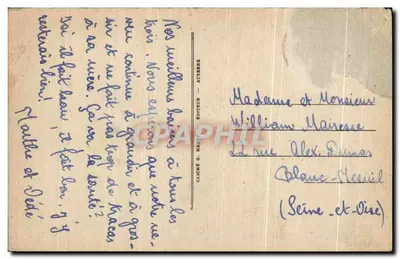 Nos meilleurs baisers à tous les
trois. Nous espérons que notre ne-
veu continue à grandir et à gros-
sir et ne fait pas trop de tracas
à sa mère. Ça va la santé?
Ici il fait beau, il fait bon, j'y
resterais bien!
Marthe et Dédé
CLICHÉ ÉDITEUR - AUXERRE
Madame et Monsieur
William Mairesse
22 rue Alex. Dumas
Blanc-Mesnil
(Seine-et-Oise)
CPAPHIL.COM